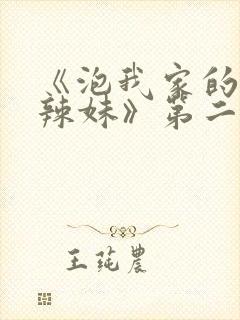 《泡我家的
辣妹》第二
王莼农